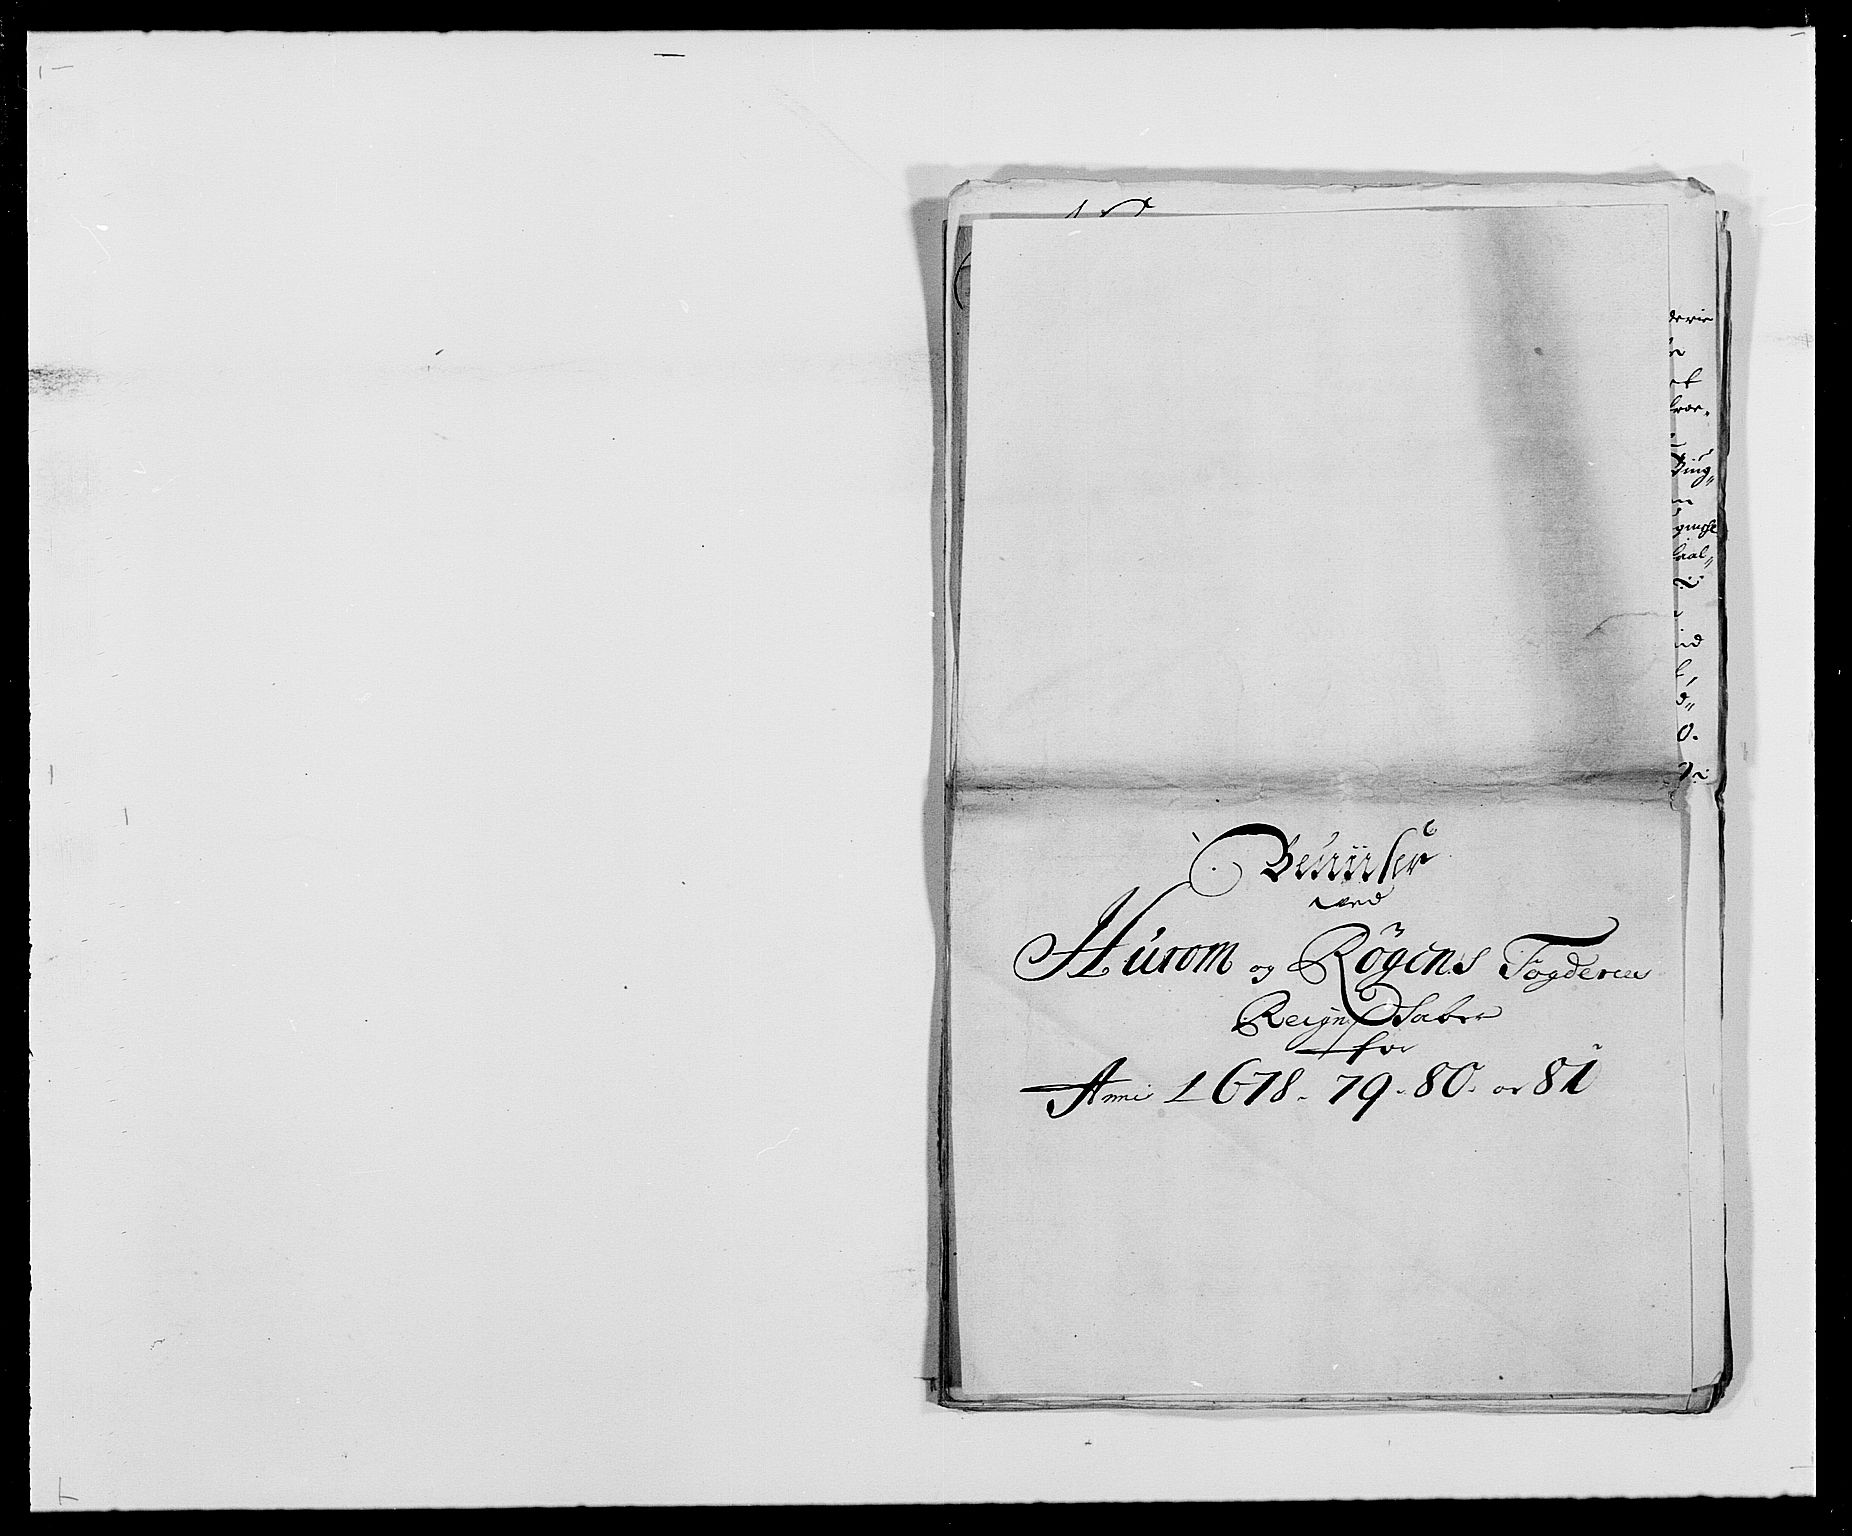 Beviiser
ved
Hurom og Røgens Fogderies
Reignschaber
for
Anni 1678. 79. 80. og 81